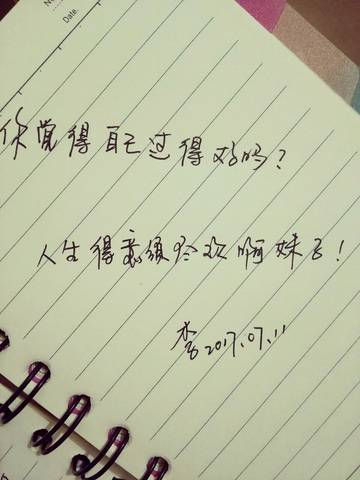 No
Date.
你觉得自己过得好吗？
人生得意须尽欢啊妹子！
李2017.07.11